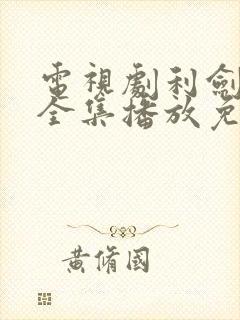 電視劇利劍
全集播放免
黃脩國